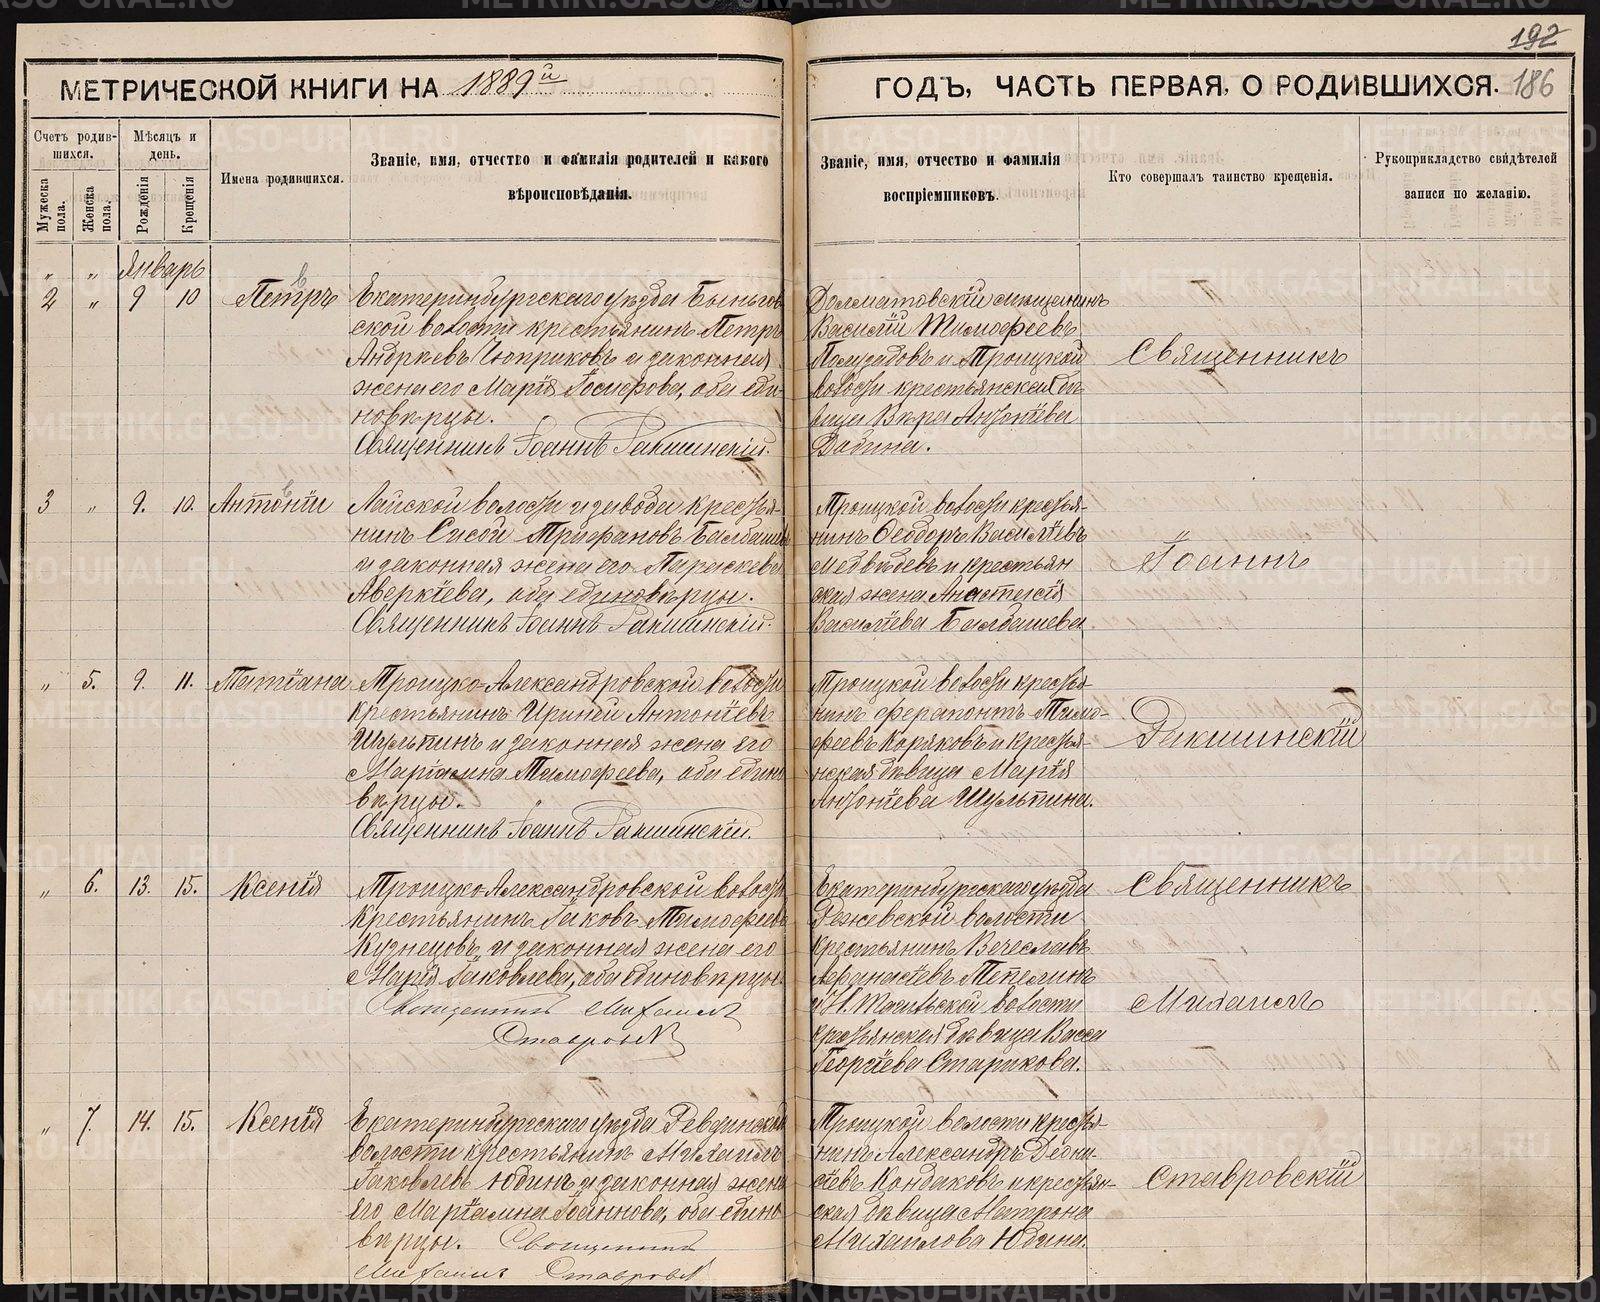 192
МЕТРИЧЕСКОЙ КНИГИ НА 1889й
ГОДЪ, ЧАСТЬ ПЕРВАЯ, О РОДИВШИХСЯ. 186
Счетъ родив-
шихся.
Мѣсяцъ и
день.
Мужеска
пола.
Женска
пола.
Рожденія
Крещенія
Имена родившихся.
Званіе, имя, отчество и фамилія родителей и какого
вѣроисповѣданія.
Званіе, имя, отчество и фамилія
воспріемниковъ.
Кто совершалъ таинство крещенія.
Рукоприкладство свидѣтелей
записи по желанію.
„ „ Январь
2 „ 9 10 Петръ
Екатеринбургскаго уѣзда Быньгов
ской волости крестьянинъ Петръ
Андреевъ Чюприковъ и законная
жена его Марія Іосифова, оба еди-
новѣрцы.
Священникъ Іоаннъ Ракшинскій.
Долматовскій мѣщанинъ
Василій Тимофеевъ
и Троицкой
волости крестьянская дѣ-
вица Вѣра Антонїева
Священникъ
3 „ 9. 10. Антоній
Лайской волости и завода кресть-
янинъ Сисой Трифановъ Балдашевъ
и законная жена его Параскева
Аверкїева, оба единовѣрцы.
Священникъ Іоаннъ Ракшинскій.
Троицкой волости крестья-
нинъ Феодоръ Васильевъ
Медвѣдевъ и крестьян
ская жена Анастасія
Васильева Балдашева
Іоаннъ
„ 5. 9. 11. Татіана
Троицко-Александровской волости
крестьянинъ Ириней Антонїевъ
Шульпинъ и законная жена его
Маріамна Тимофеева, оба едино
вѣрцы.
Священникъ Іоаннъ Ракшинскій.
Троицкой волости крестья-
нинъ Ферапонтъ Тимо-
феевъ Коряковъ и крестья-
нская дѣвица Марія
Антонїева Шульпина.
Ракшинскій
„ 6. 13. 15. Ксенія
Троицко-Александровской волости
крестьянинъ Іаковъ Тимофеевъ
Кузнецовъ и законная жена его
Марія Іаковлева, оба единовѣрцы.
Священникъ Михаилъ
Екатеринбургскаго уѣзда
Режевской волости
крестьянинъ Вечеславъ
Афанасїевъ Тепелинъ
и Н. Тагильской волости
крестьянская дѣвица Васса
Георгїева Старикова.
Священникъ
Михаилъ
„ 7. 14. 15. Ксенія
Екатеринбургскаго уѣзда Ревдинской
волости крестьянинъ Михаилъ
Іаковлевъ Юдинъ и законная жена
его Маріамна Іоаннова, оба едино
вѣрцы. Священникъ
Михаилъ
Троицкой волости кресть-
нинъ Александръ Деони-
сїевъ Кондаковъ и крестьян-
ская дѣвица Матрона
Михаилова Юдина.
Ставровскій